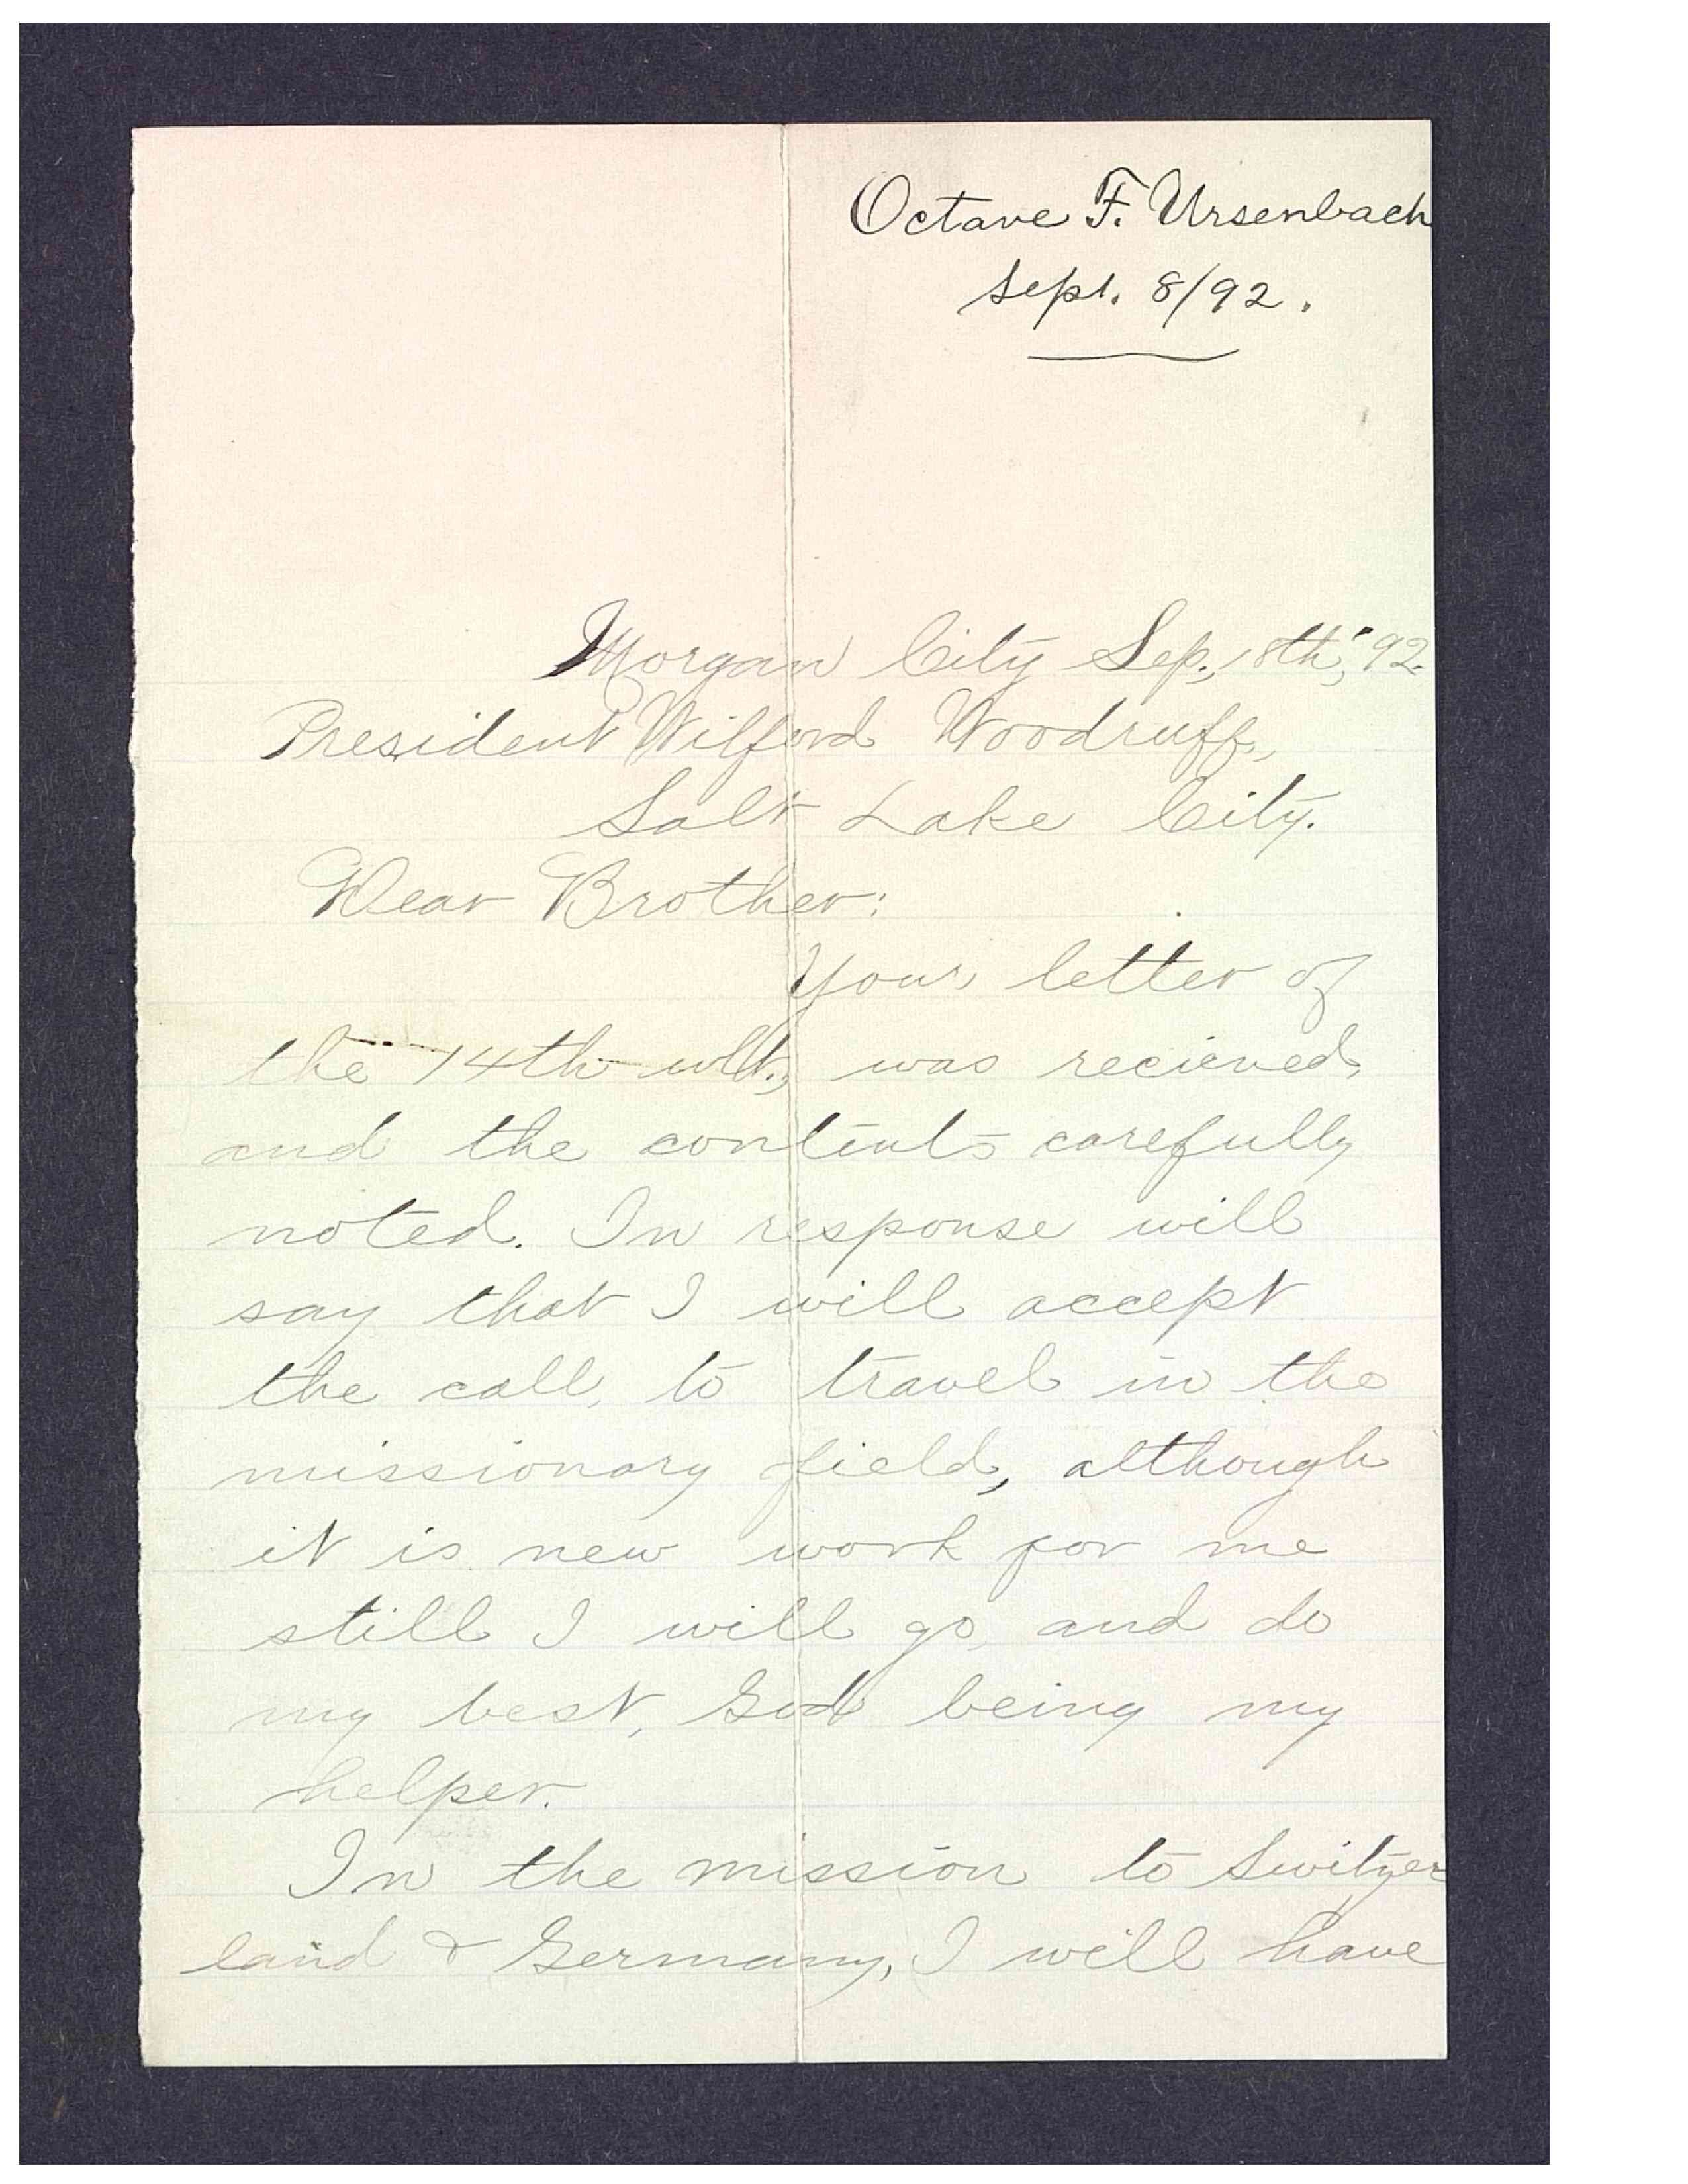 Octave F. Ursenbach
Sept. 8/92.
Morgan City Sep., 8th, '92.
President Wilford Woodruff,
Salt Lake City.
Dear Brother:
Your letter of
the 14th ult., was recieved,
and the contents carefully
noted. In response will
say that I will accept
the call, to travel in the
missionary field, although
it is new work for me
still I will go, and do
my best, God being my
helper.
In the mission to Switzer
land & Germany, I will have